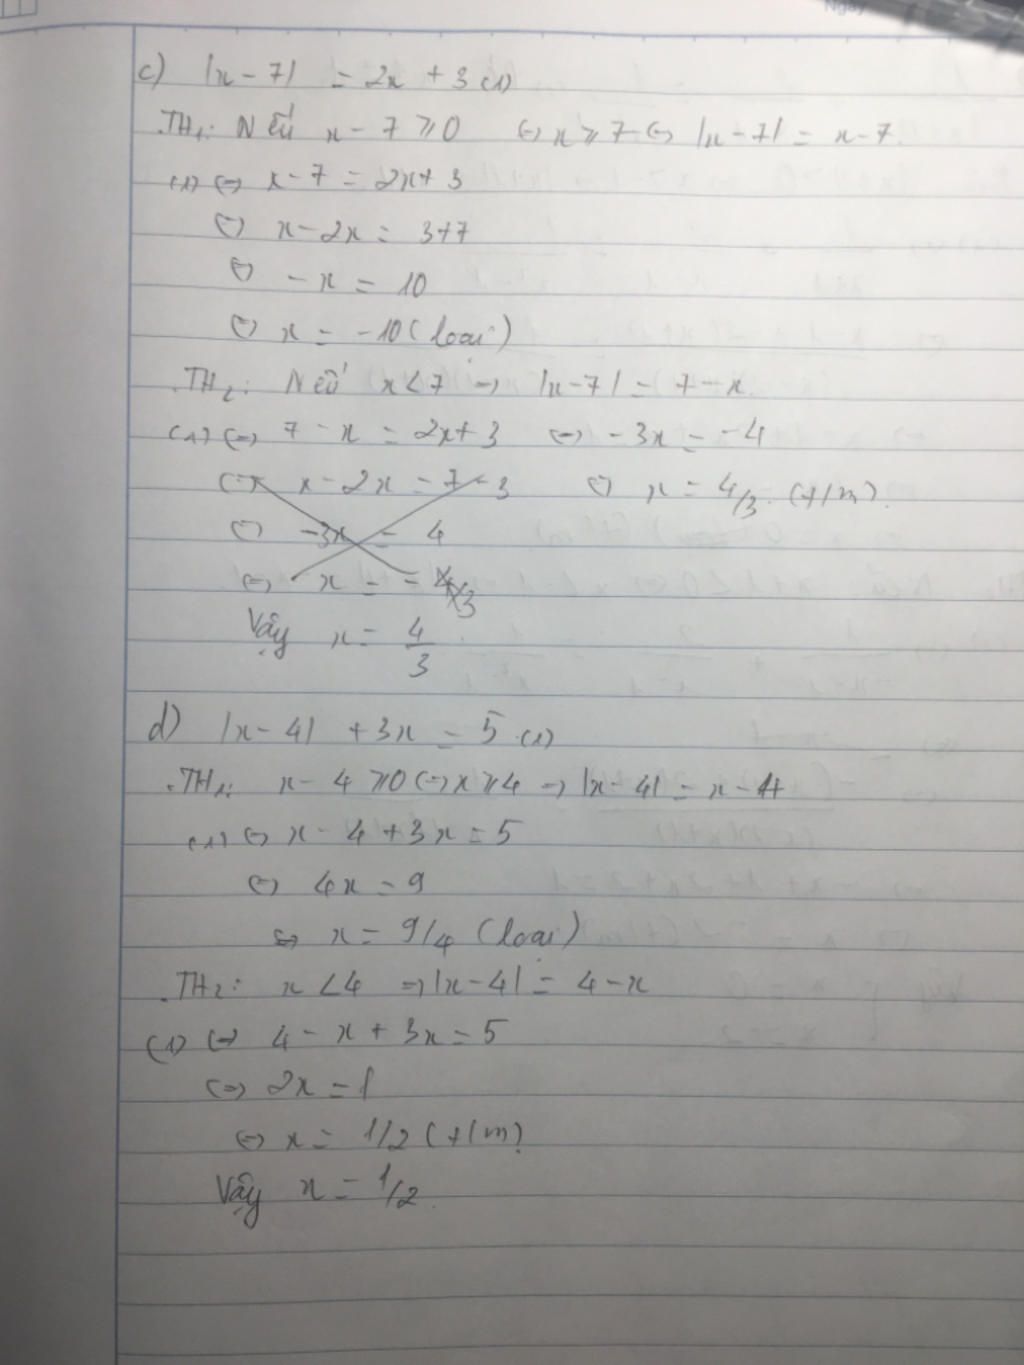 c) |x - 7| = 2x + 3 (1)
.TH1: Nếu x - 7 ⩾ 0 ⇔ x ⩾ 7 ⇔ |x - 7| = x - 7.
(1) ⇔ x - 7 = 2x + 3
⇔ x - 2x = 3+7
⇔ - x = 10
⇔ x = -10 (loại)
.TH2: Nếu x < 7 ⇒ |x-7| = 7 - x
(1) ⇔ 7 - x = 2x + 3 ⇔ -3x = -4
⇔ x - 2x = 7 - 3 ⇔ x = 4/3 (t/m).
⇔ -3x = 4
⇔ x = = 4/3
Vậy x = 4/3
d) |x - 4| + 3x = 5 (1)
.TH1: x - 4 ⩾ 0 ⇔ x ⩾ 4 ⇒ |x - 4| = x - 4
(1) ⇔ x - 4 + 3x = 5
⇔ 4x = 9
⇔ x = 9/4 (loại)
.TH2: x < 4 ⇒ |x - 4| = 4 - x
(1) ⇔ 4 - x + 3x = 5
⇔ 2x = 1
⇔ x = 1/2 (t/m)
Vậy x = 1/2.